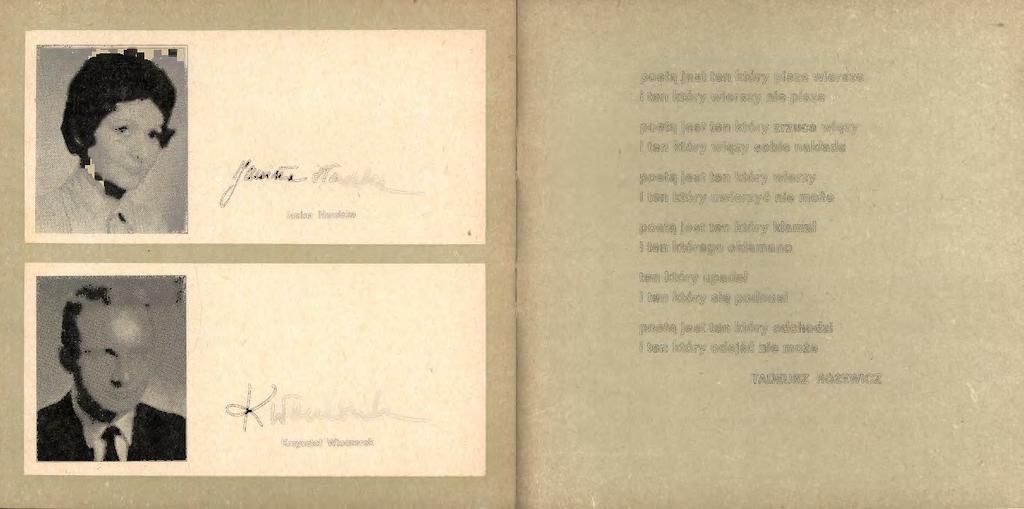 Janina
Krzysztof
poetą jest ten który pisze wiersze
i ten który wierszy nie pisze
poetą jest ten który zrzuca więzy
i ten który więzy sobie nakłada
poetą jest ten który wierzy
i ten który uwierzyć nie może
poetą jest ten który kłamał
i ten którego okłamano
ten który upadał
i ten który się podnosi
poetą jest ten który odchodzi
i ten który odejść nie może
TADEUSZ RÓŻEWICZ